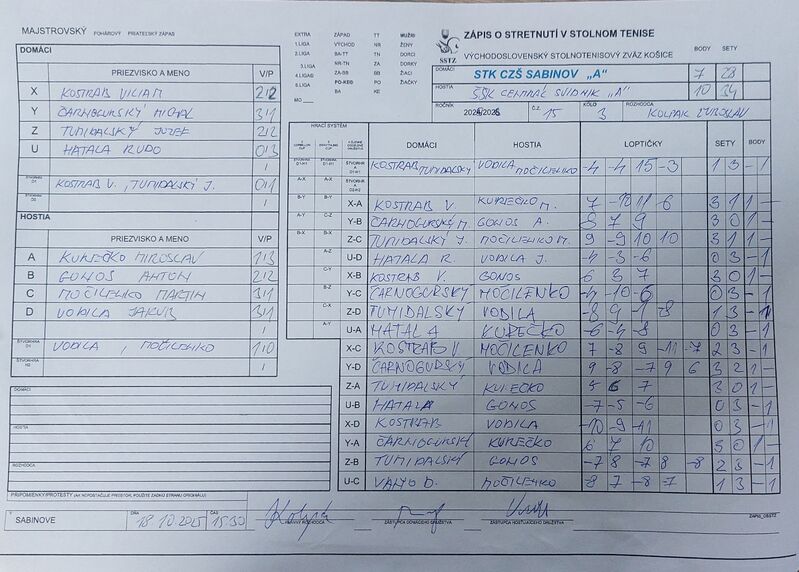 MAJSTROVSKÝ POHÁROVÝ PRIATEĽSKÝ ZÁPAS
DOMÁCI
PRIEZVISKO A MENO V/P
X KOSTRAB VILIAM 2/2
Y ČARNOGURSKÝ MICHAL 3/1
Z TUMIDALSKÝ JOZEF 2/2
U HATALA RUDO 0/3
/
ŠTVORHRA D1 KOSTRAB V., TUMIDALSKÝ J. 0/1
/
HOSTIA
PRIEZVISKO A MENO V/P
A KUREČKO MIROSLAV 1/3
B GONOS ANTON 2/2
C MOČILENKO MARTIN 3/1
D VODILA JAKUB 3/1
/
ŠTVORHRA VODILA, MOČILENKO 1/0
/
DOMÁCI
HOSTIA
ROZHODCA
PRIPOMIENKY/PROTESTY (AK NEPOSTAČUJE PRIESTOR, POUŽITE ZADNÚ STRANU ORIGINÁLU)
V SABINOVE DŇA 18 10 2025 ČAS 15.30
EXTRA ZÁPAD TT MUŽI
1.LIGA VÝCHOD NR ŽENY
2.LIGA BA-TT TN DORCI
3.LIGA NR-TN ZA DORKY
4.LIGA ZA-BB BB ŽIACI
5.LIGA PO-KE PO ŽIAČKY
BA KE
MO
SSTZ
ZÁPIS O STRETNUTÍ V STOLNOM TENISE
VÝCHODOSLOVENSKÝ STOLNOTENISOVÝ ZVÄZ KOŠICE BODY SETY
DOMÁCI STK CZŠ SABINOV „A" 7 28
HOSTIA ŠŠK CENTRÁL SVIDNÍK "A" 10 34
ROČNÍK 2025/2026 Č.Z. 15 KOLO 3 ROZHODCA KOLPAK JAROSLAV
HRACÍ SYSTÉM
DOMÁCI HOSTIA LOPTIČKY SETY BODY
ŠTVORHRA D1-H1 KOSTRAB TUMIDALSKÝ VODILA MOČILENKO -4 -4 15 -3 1 3 - 1
A-X A-X ŠTVORHRA D2-H2
B-Y B-Y X-A KOSTRAB V. KUREČKO M. 7 -10 11 6 3 1 1 -
A-Y C-Z Y-B ČARNOGURSKÝ M GONOS A. 8 7 9 3 0 1 -
B-X B-X Z-C TUMIDALSKÝ J. MOČILENKO M. 9 -9 10 10 3 1 1 -
A-Z U-D HATALA R. VODILA J. -4 -3 -6 0 3 - 1
C-Y X-B KOSTRAB V. GONOS 6 3 7 3 0 1 -
B-Z Y-C ČARNOGURSKÝ MOČILENKO -4 -10 -6 0 3 - 1
C-X Z-D TUMIDALSKÝ VODILA -8 9 -1 -8 1 3 - 1
A-Y U-A HATALA KUREČKO -6 -4 -8 0 3 - 1
X-C KOSTRAB V MOČILENKO 7 -8 9 -11 -7 2 3 - 1
Y-D ČARNOGURSKÝ VODILA 9 -8 -7 9 6 3 2 1 -
Z-A TUMIDALSKÝ KUREČKO 5 6 7 3 0 1 -
U-B HATALA GONOS -7 -5 -6 0 3 - 1
X-D KOSTRAB VODILA -10 -9 -11 0 3 - 1
Y-A ČARNOGURSKÝ KUREČKO 6 7 10 3 0 1 -
Z-B TUMIDALSKÝ GONOS -7 8 -7 8 -8 2 3 - 1
U-C VANYO D. MOČILENKO -8 7 -8 -7 1 3 - 1
HLAVNÝ ROZHODCA ZÁSTUPCA DOMÁCEHO DRUŽSTVA ZÁSTUPCA HOSŤUJÚCEHO DRUŽSTVA
ZÁPIS_OBSTZ